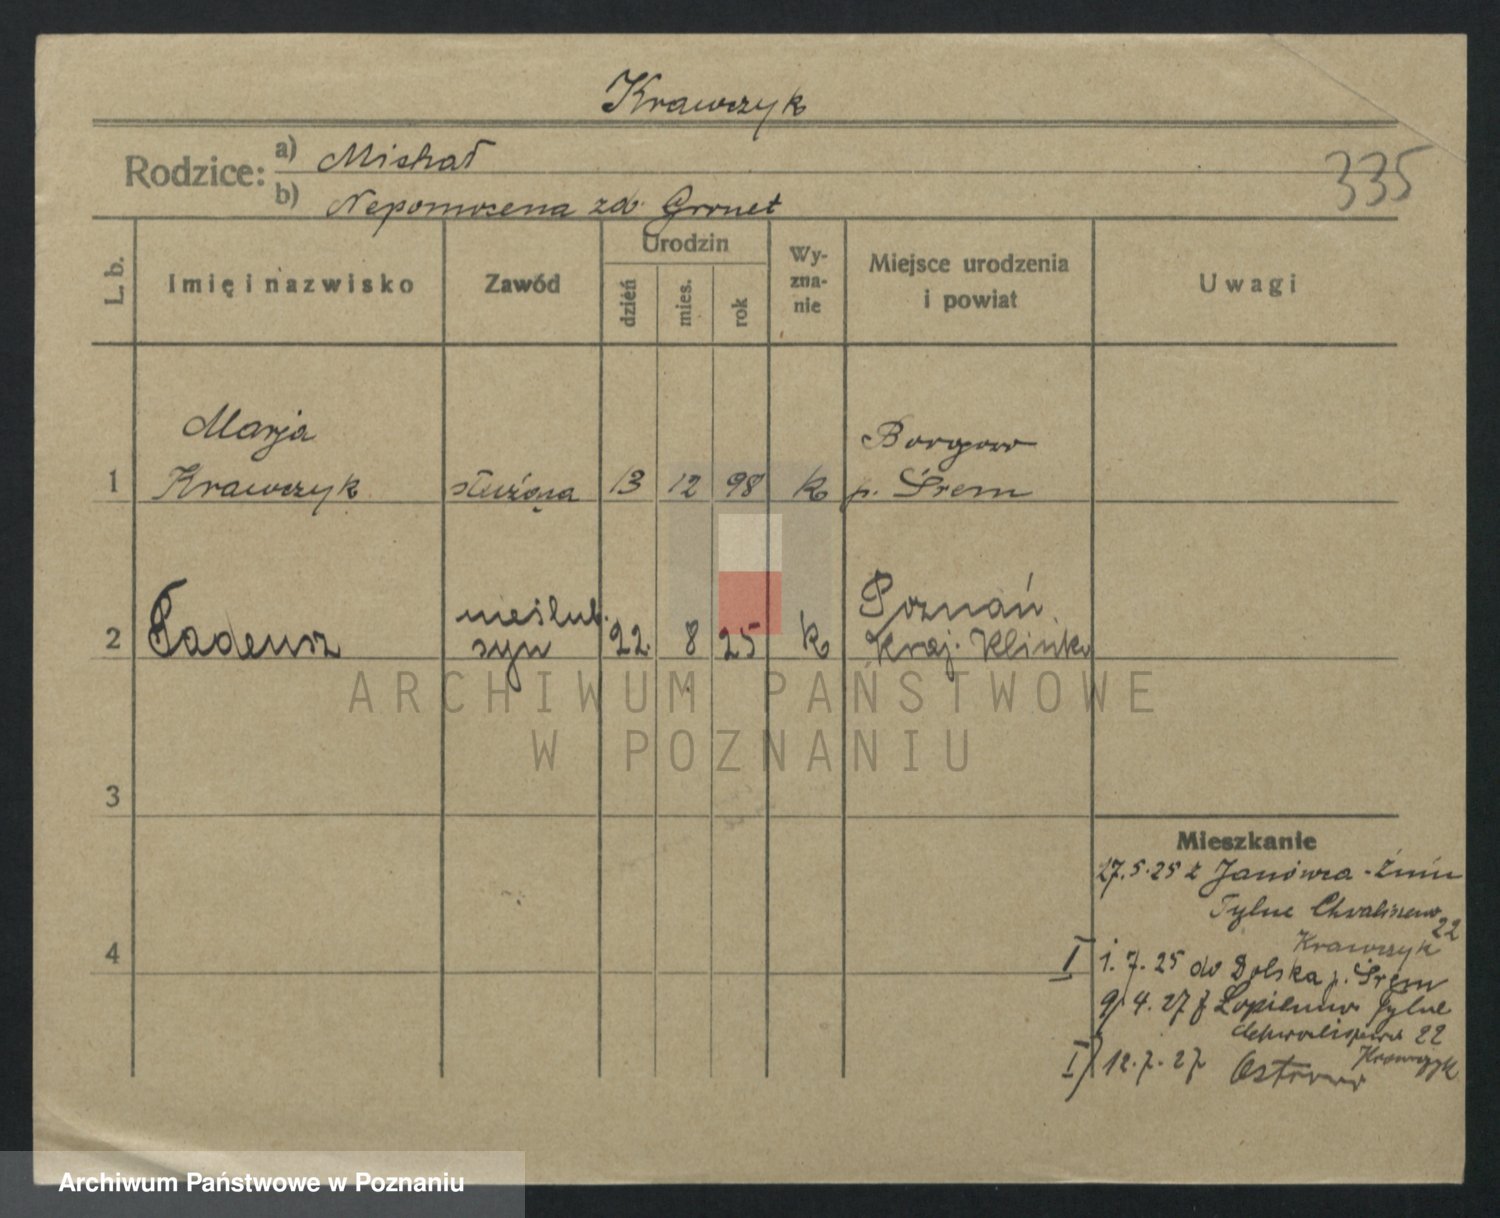 Krawczyk
Rodzice: a) Michał
335
b) Nepomucena zd. Gronet
L. b.
Imię i nazwisko
Zawód
Urodzin
dzień
mies.
rok
Wy-
zna-
nie
Miejsce urodzenia
i powiat
Uwagi
Marja
Borgowo
1 Krawczyk służąca 13 12 98 k p. Śrem
nieślub. Poznań
2 Tadeusz syn 22. 8 25 k Kraj. Klinka
ARCHIWUM PAŃSTWOWE
W POZNANIU
3
Mieszkanie
27.5.25 z Janówca - Żnin
Tylne Chwaliszewo
22
Krawczyk
4
I 1. 7. 25 do Dolska p. Śrem
9. 4. 27 z Łopienno Tylne
Chwaliszewo 22
Krawczyk
I) 12. 7. 27 Ostrowo
Archiwum Państwowe w Poznaniu